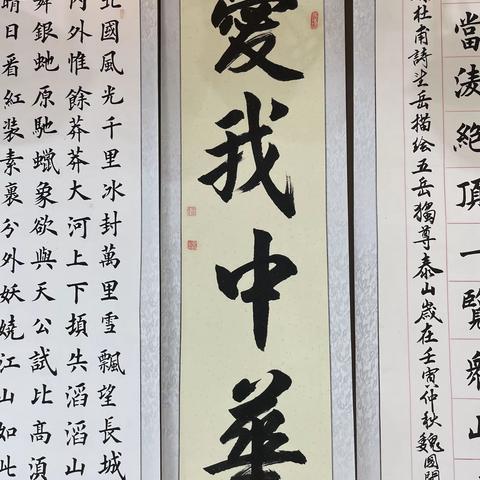 當凌絶頂一覽衆山
杜甫詩望岳描绘五岳獨尊泰山歲在壬寅仲秋魏國
愛我中華
北國風光千里冰封萬里雪飄望長城
内外惟餘莽莽大河上下頓失滔滔山
舞銀虵原馳蠟象欲與天公試比髙湏
晴日看紅装素裹分外妖嬈江山如此